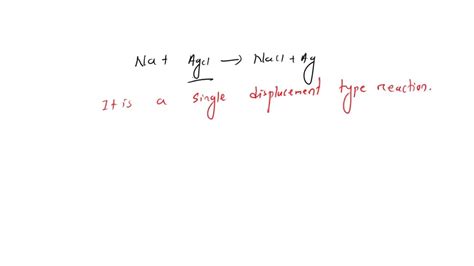 Na + AgCl → NaCl + Ag
It is a single displacement type reaction.